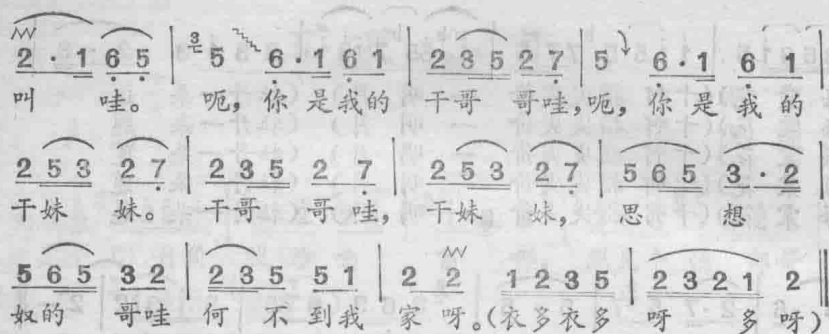 2·1 6 5 | 3 5 6·1 6 1 | 2 3 5 2 7 | 5 6·1 6·1 |
叫 哇。 呃,你是我的 干哥 哥哇,呃,你是我的
2 5 3 2 7 | 2 3 5 2 7 | 2 5 3 2 7 | 5 6 5 3·2 |
干妹 妹。 干哥 哥哇, 干妹 妹, 思 想
5 6 5 3 2 | 2 3 5 5 1 | 2 2 1 2 3 5 | 2 3 2 1 2 ‖
奴的 哥哇 何 不到我 家 呀。(衣多衣多 呀 多 呀)